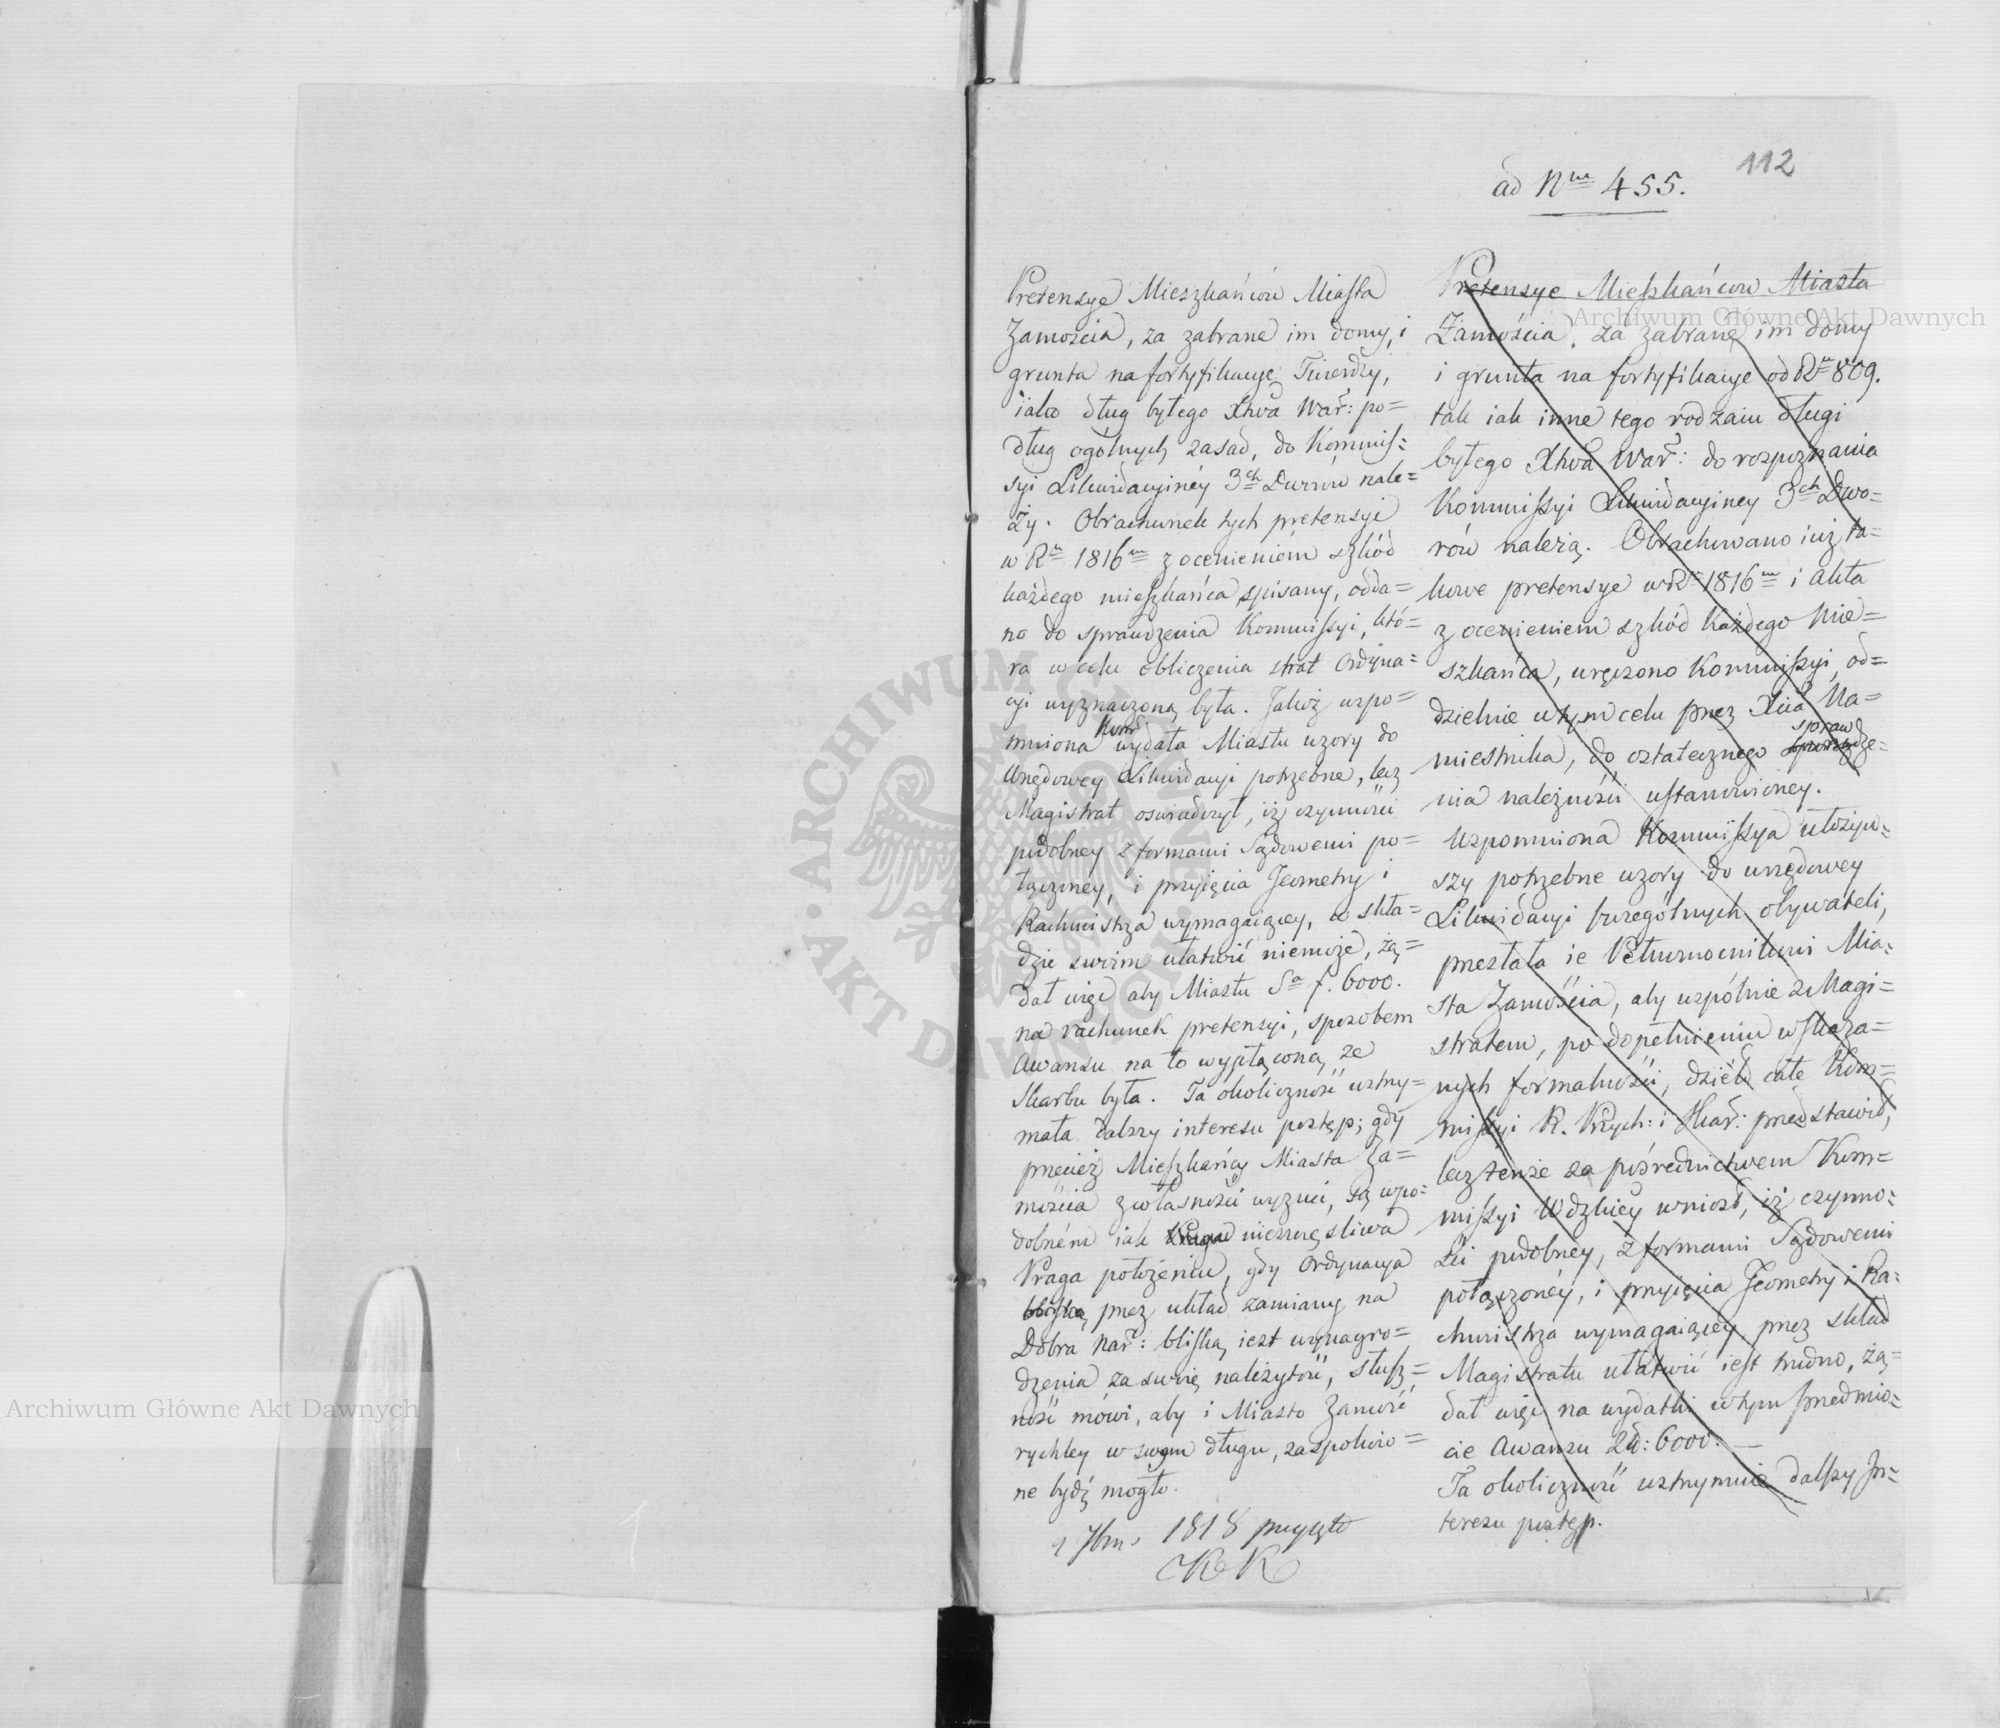 112
ad Nm 455.
Pretensye Mieszkańców Miasta
Zamościa, za zabrane im domy, i
grunta na fortyfikacye Twierdzy,
iako dług byłego Xtwa War: po=
dług ogólnych zasad, do Kommis=
syi Likwidacyiney 3ch Dworów nale=
ży. Obrachunek tych pretensyi
w Ru 1816m z ocenieniem szkód
każdego mieszkańca spisany, odda=
no do sprawdzenia Kommissyi, któ=
ra w celu obliczenia strat Ordyna=
cyi wyznaczoną była. Jakoż wspo=
mniona Kom: wydała Miastu wzory do
Urzędowey Likwidacyi potrzebne, lecz
Magistrat oświadczył, iż czynności
podobney z formami Sądowemi po=
łączoney, i przyięcia Jeometry i
Rachmistrza wymagaiącey, w skła=
dzie swoim ułatwić niemoże, żą=
dał więc aby Miastu Sa f. 6000.
na rachunek pretensyi, sposobem
Awansu na to wypłaconą ze
Skarbu była. Ta okoliczność wstrzy=
mała dalszy interesu postęp; gdy
przecież Mieszkańcy Miasta Za=
mościa z własności wyzuci, są w po=
dobném iak nieszczęśliwa
Praga położeniu, gdy Ordynacya
bliską przez układ zamiany na
Dobra Nar: bliską iest wynagro=
dzenia za swoię należytość, słusz=
ność mówi, aby i Miasto Zamość
rychley w swym długu, zaspokoio=
ne bydź mogło.
1818 przyięto
KRK
Pretensye Mieszkańców Miasta
Zamościa, za zabrane im domy
i grunta na fortyfikacye od Ru 809.
tak iak inne tego rodzaiu długi
byłego Xtwa War: do rozpoznania
Kommissyi Likwidacyiney 3ch Dwo=
rów należą. Obrachowano iuż ta=
kowe pretensye w Ru 1816m i Akta
z ocenieniem szkód każdego Mie=
szkańca, wręczono Kommissyi od=
dzielnie w tym celu przez Xcia Na=
miestnika, do ostatecznego sprawdze=
nia należności ustanowioney.
Wspomniona Kommissya ułożyw=
szy potrzebne wzory do urzędowey
Likwidacyi szczególnych obywateli,
przesłała ie Pełnomocnikowi Mia=
sta Zamościa, aby wspólnie z Magi=
stratem, po dopełnieniu wskaza=
nych formalności, dzieło całe Kom=
missyi R. Przych: i Skar: przedstawił,
lecz tenże za pośrednictwem Kom=
missyi Wdzkiey wniosł, iż czynno=
ści podobney, z formami Sądowemi
połączoney, i przyięcia Jeometry i Ra=
chmistrza wymagaiącey przez skład
Magistratu ułatwić iest trudno, żą=
dał więc na wydatki w tym przedmio=
cie Awansu Zł: 6000. —
Ta okoliczność wstrzymuie dalszy In=
teresu postęp.
Archiwum Główne Akt Dawnych
Archiwum Główne Akt Dawnych
ARCHIWUM GŁÓWNE AKT DAWNYCH